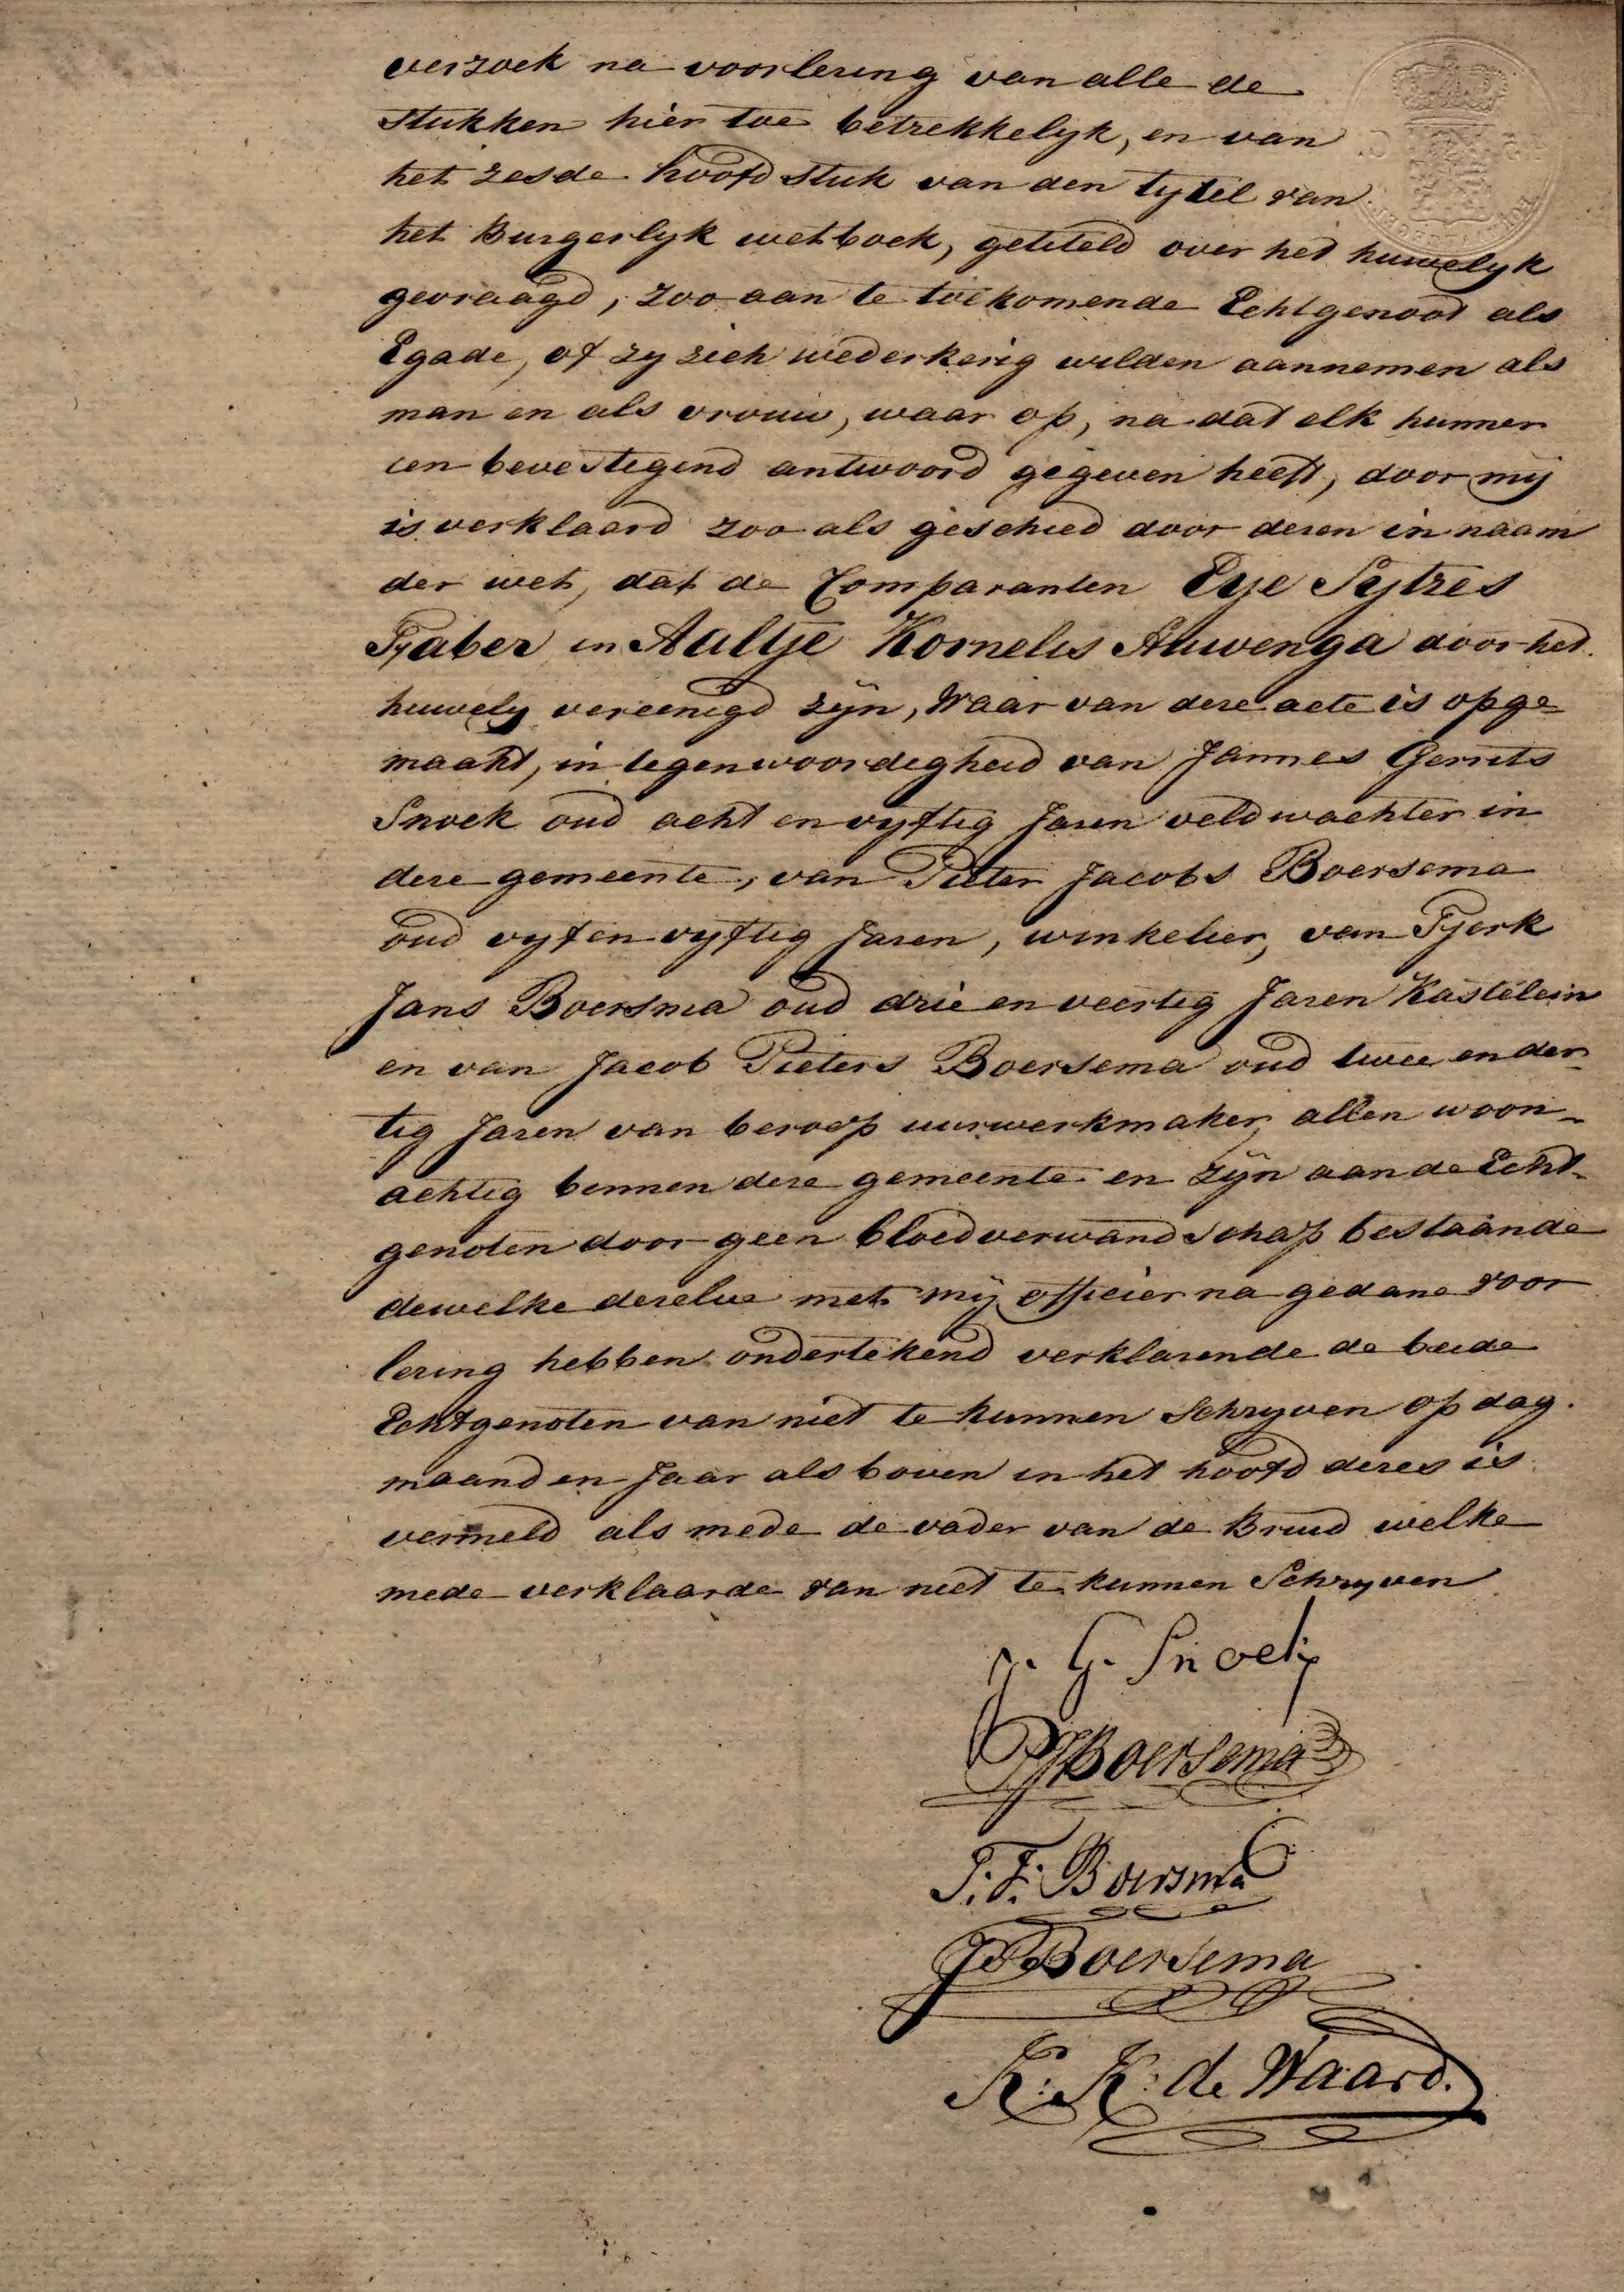 verzoek na voorlezing van alle de
stukken hier toe betrekkelyk, en van
het zesde hoofdstuk van den tytel van
het Burgerlyk wetboek, getiteld over het huwelyk
gevraagd, zoo aan te toekomende Echtgenoot als
Egade, of zy zich wederkerig wilden aannemen als
man en als vrouw, waar op, na dat elk hunner
een bevestigend antwoord gegeven heeft, door mij
is verklaard zoo als geschied door dezen in naam
der wet, dat de Comparanten Eije Sytzes
Tjaber en Aaltje Kornelis Auwenga door het
huwely vereenigd zijn, Waar van deze acte is opge-
maakt, in tegenwoordigheid van Jannes Gerrits
Snoek oud acht en vyftig Jaren veldwachter in
deze gemeente, van Pieter Jacobs Boersema
oud vyf en vyftig Jaren, winkelier, van Tjerk
Jans Boersma oud drie en veertig Jaren Kastelein
en van Jacob Pieters Boersema oud twee en der-
tig Jaren van beroep uurwerkmaker, allen woon-
achtig binnen deze gemeente en zijn aan de Echt-
genoten door geen bloedverwandschap bestaande
dewelke dezelve met mij officier na gedane voor
lezing hebben ondertekend verklarende de beide
Echtgenoten van niet te kunnen Schryven op dag.
maand en Jaar als boven in het hoofd dezes is
vermeld als mede de vader van de Bruid welke
mede verklaarde van niet te kunnen Schryven
J. G. Snoek
PJBoersema
T. J. Boersma
JPBoersema
K: K: de Waard.